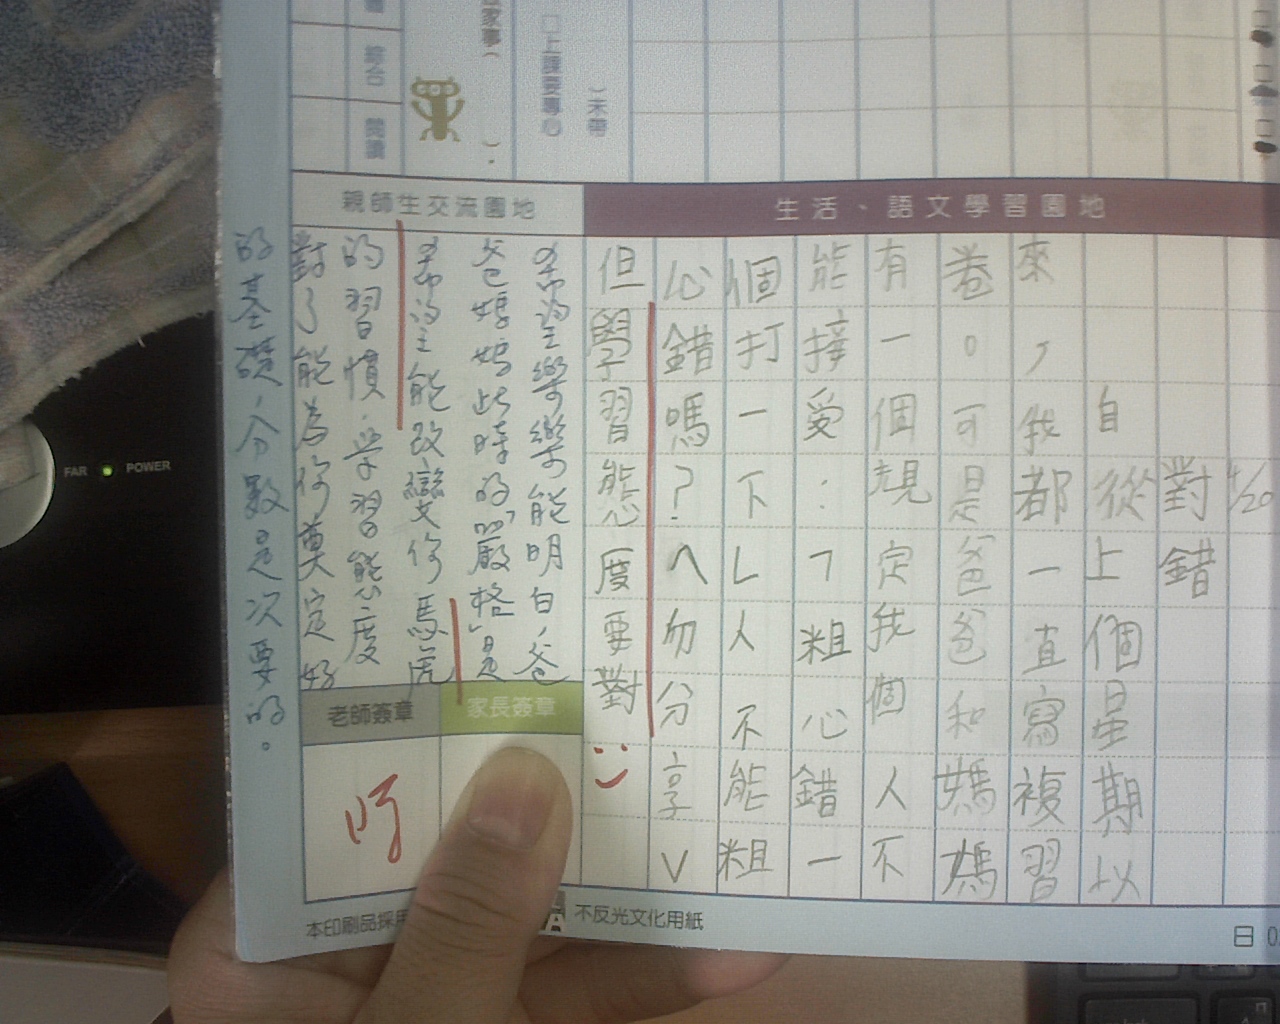 綜合
閱讀
□上課要專心
）未帶
親師生交流園地
生活、語文學習園地
4/20
對錯
自從上個星期以
來，我都一直寫複習
卷。可是爸爸和媽媽
有一個規定我個人不
能接受：「粗心錯一
個打一下」人不能粗
心錯嗎？〈勿分享〉
但學習態度要對
希望樂樂能明白，爸
爸媽媽此時的"嚴格"是
希望能改變你馬虎
的習慣，學習態度
對了能為你奠定好
的基礎，分數是次要的。
老師簽章
家長簽章
本印刷品採用
不反光文化用紙
日
FAR
POWER